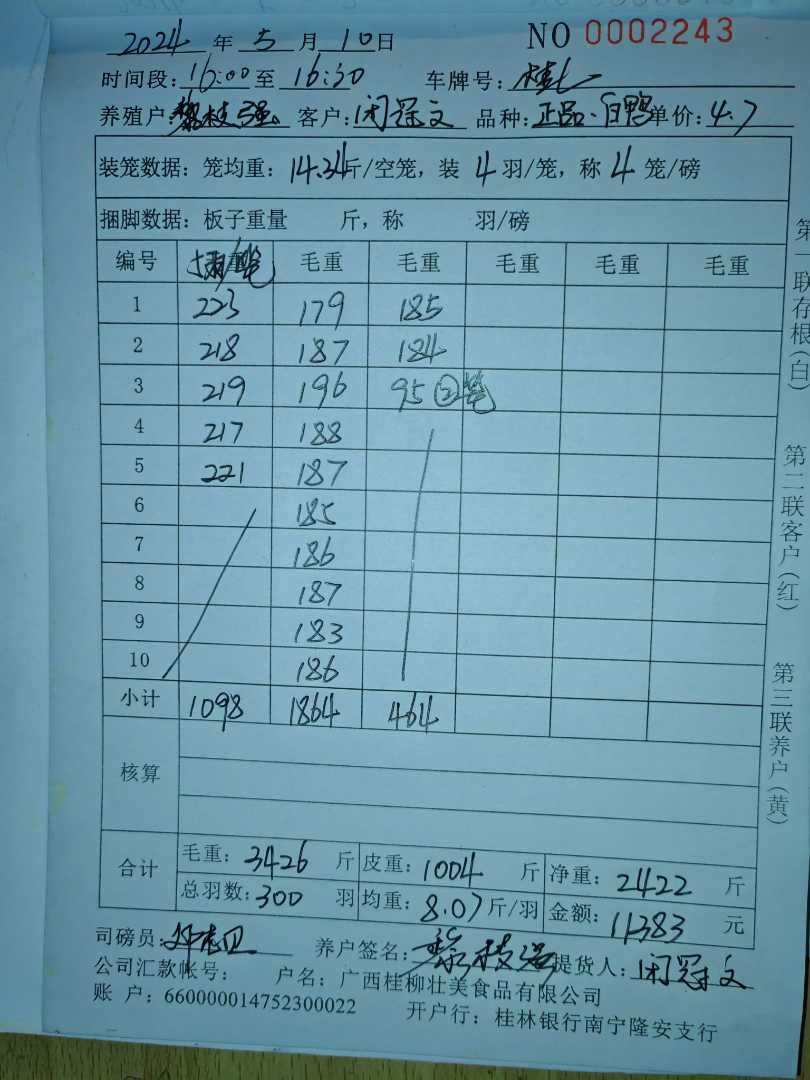 2024 年 5 月 10 日 NO 0002243
时间段: 16:00 至 16:30 车牌号:
养殖户: 黎枝强 客户: 闭冠文 品种: 正品·白鸭 单价: 4.7
装笼数据: 笼均重: 14.34 斤/空笼, 装 4 羽/笼, 称 4 笼/磅
捆脚数据: 板子重量 斤, 称 羽/磅
编号 毛重 毛重 毛重 毛重 毛重
1 223 179 185
2 218 187 184
3 219 196 95 ②笼
4 217 188
5 221 187
6 185
7 186
8 187
9 183
10 186
小计 1098 1864 464
核算
合计 毛重: 3426 斤 皮重: 1004 斤 净重: 2422 斤
总羽数: 300 羽 均重: 8.07 斤/羽 金额: 11383 元
司磅员: 养户签名: 黎枝强 提货人: 闭冠文
公司汇款帐号: 户名: 广西桂柳壮美食品有限公司
账 户: 660000014752300022 开户行: 桂林银行南宁隆安支行
第一联存根(白) 第二联客户(红) 第三联养户(黄)